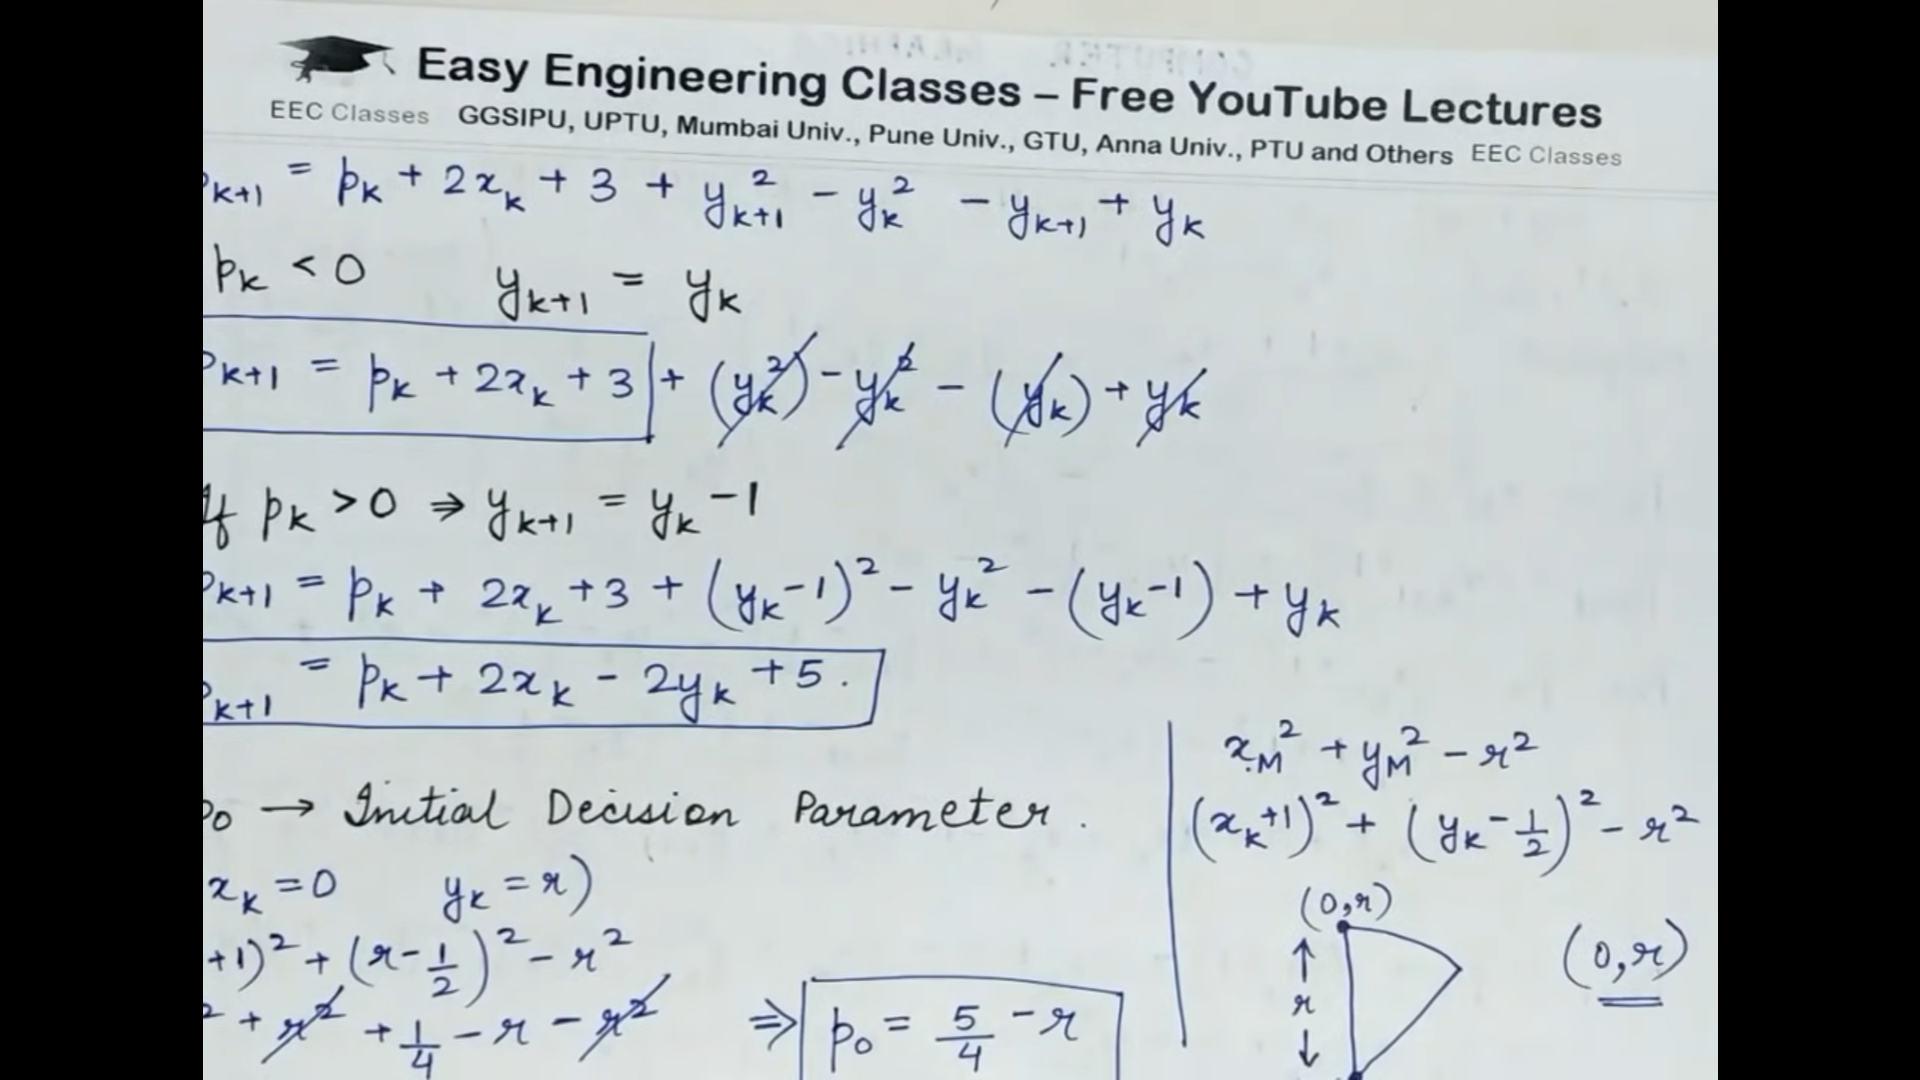 COMPUTER GRAPHICS
Easy Engineering Classes – Free YouTube Lectures
EEC Classes GGSIPU, UPTU, Mumbai Univ., Pune Univ., GTU, Anna Univ., PTU and Others EEC Classes
pₖ₊₁ = pₖ + 2xₖ + 3 + yₖ₊₁² − yₖ² − yₖ₊₁ + yₖ
pₖ < 0 yₖ₊₁ = yₖ
pₖ₊₁ = pₖ + 2xₖ + 3 + (yₖ²) − yₖ² − (yₖ) + yₖ
If pₖ > 0 ⇒ yₖ₊₁ = yₖ − 1
pₖ₊₁ = pₖ + 2xₖ + 3 + (yₖ−1)² − yₖ² − (yₖ−1) + yₖ
pₖ₊₁ = pₖ + 2xₖ − 2yₖ + 5.
p₀ → Initial Decision Parameter.
xₖ = 0 yₖ = r)
+1)² + (r − 1/2)² − r²
² + r² + 1/4 − r − r² ⇒ p₀ = 5/4 − r
x_M² + y_M² − r²
(xₖ+1)² + (yₖ − 1/2)² − r²
(0,r)
(0,r)
r